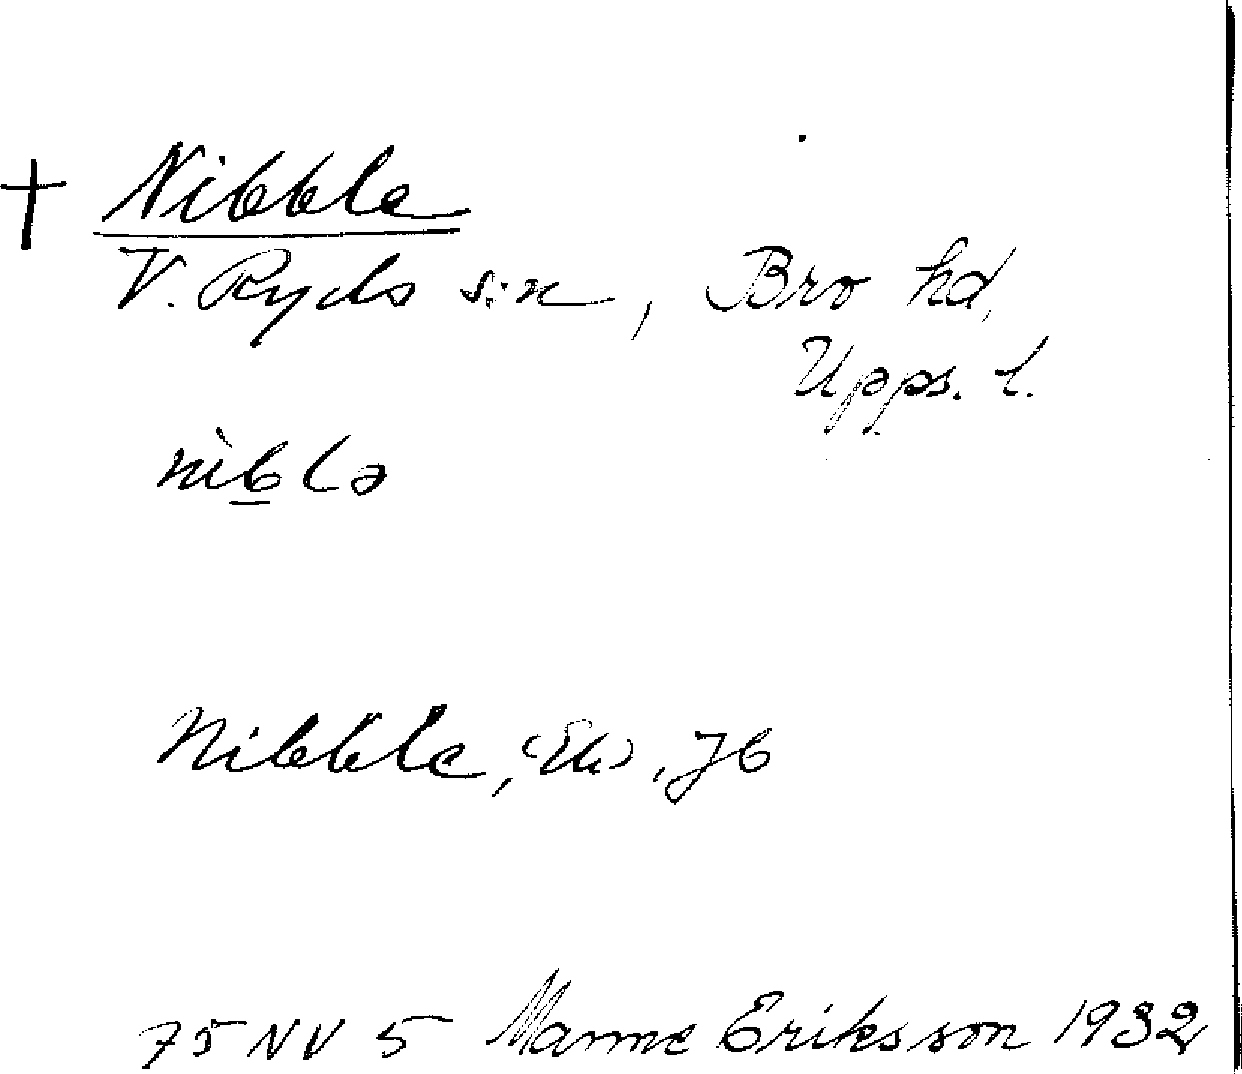 † Nibble
V. Ryds s:n, Bro hd,
Upps. l.
nìb̲lə
Nibble, (Ek), Jb
75 NV 5 Manne Eriksson 1932